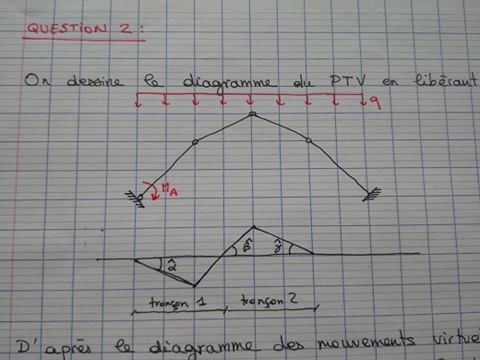 QUESTION 2 :
On dessine le diagramme du PTV en libérant
q
MA
α̂ β̂ γ̂
tronçon 1 tronçon 2
D'après le diagramme des mouvements virtue